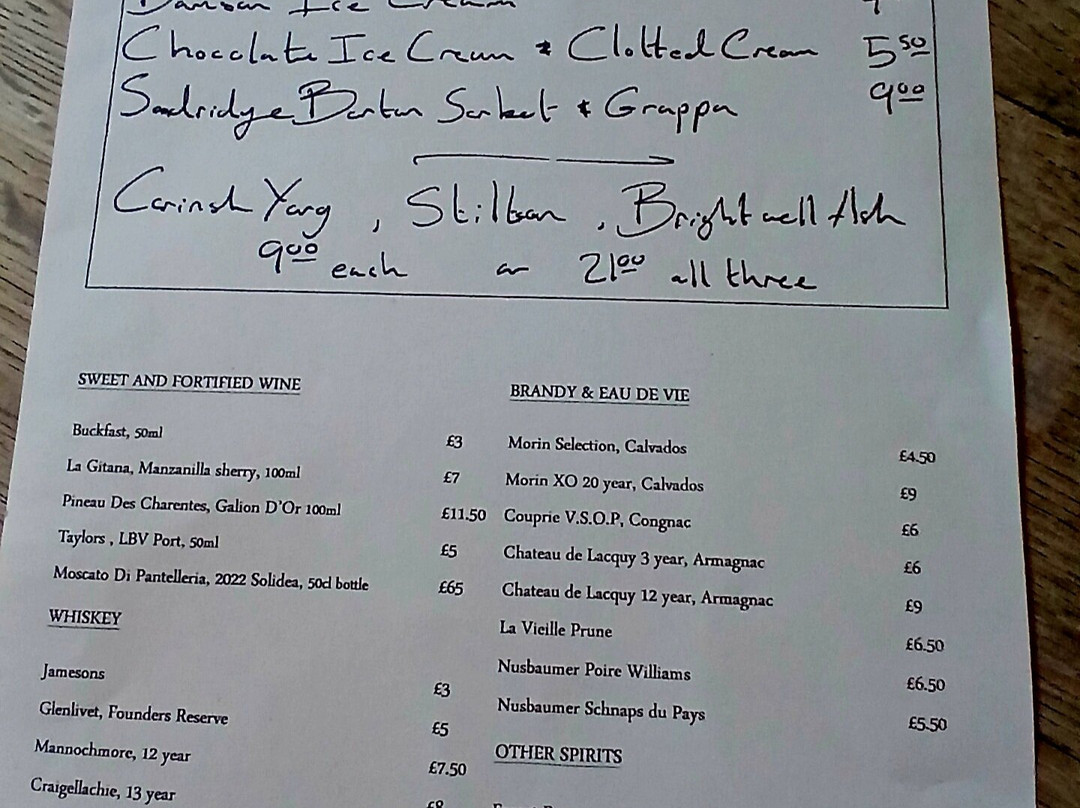 Damson Ice Cream
Chocolate Ice Cream & Clotted Cream 5 50
Sandridge Barton Sorbet & Grappa 9 00
Cornish Yarg, Stilton, Brightwell Ash
9 00 each or 21 00 all three
SWEET AND FORTIFIED WINE
Buckfast, 50ml £3
La Gitana, Manzanilla sherry, 100ml £7
Pineau Des Charentes, Galion D'Or 100ml £11.50
Taylors , LBV Port, 50ml £5
Moscato Di Pantelleria, 2022 Solidea, 50cl bottle £65
WHISKEY
Jamesons £3
Glenlivet, Founders Reserve £5
Mannochmore, 12 year £7.50
Craigellachie, 13 year £8
BRANDY & EAU DE VIE
Morin Selection, Calvados £4.50
Morin XO 20 year, Calvados £9
Couprie V.S.O.P, Congnac £6
Chateau de Lacquy 3 year, Armagnac £6
Chateau de Lacquy 12 year, Armagnac £9
La Vieille Prune £6.50
Nusbaumer Poire Williams £6.50
Nusbaumer Schnaps du Pays £5.50
OTHER SPIRITS